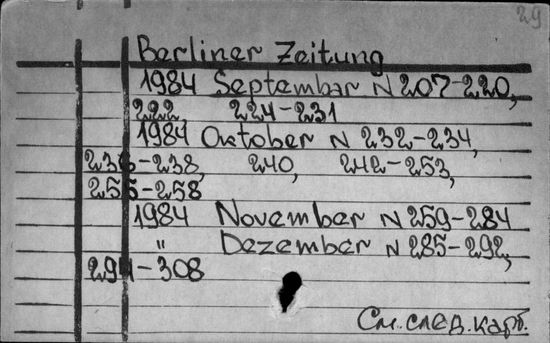 29
Berliner Zeitung
1984 September N 207-220,
222, 224-231
1984 Oktober N 232-234,
236-238, 240, 242-253,
255-258
1984 November N 259-284
" Dezember N 285-292,
294-308
См. след. карт.